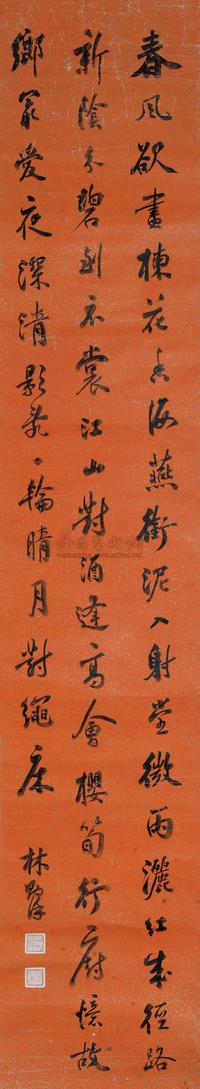 春風欲盡楝花香海燕銜泥入射堂微雨灑紅成徑路
新陰分碧到衣裳江山對酒逢高會櫻筍行廚憶故
鄉最愛夜深清影表一輪晴月對繩床
林